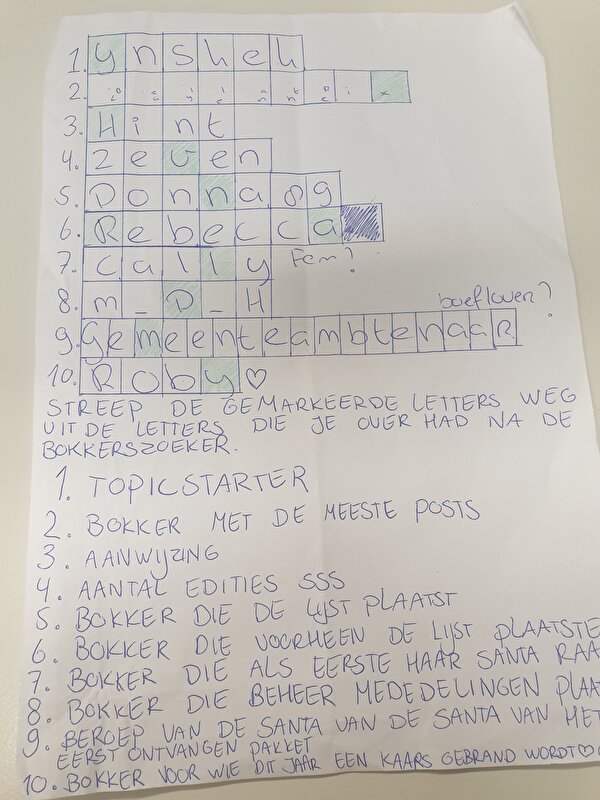 1. ynsheh
2. i x
3. Hint
4. zeven
5. Donna89
6. Rebecca
7. Cally Fem?
8. m_D_H
boeflover?
9. GemeenteambtenaaR
10. Roby ♡
STREEP DE GEMARKEERDE LETTERS WEG
UIT DE LETTERS DIE JE OVER HAD NA DE
BOKKERSZOEKER.
1. TOPICSTARTER
2. BOKKER MET DE MEESTE POSTS
3. AANWIJZING
4. AANTAL EDITIES SSS
5. BOKKER DIE DE LIJST PLAATST
6. BOKKER DIE VOORHEEN DE LIJST PLAATSTE
7. BOKKER DIE ALS EERSTE HAAR SANTA RAA
8. BOKKER DIE BEHEER MEDEDELINGEN PLAA
9. BEROEP VAN DE SANTA VAN DE SANTA VAN HET
EERST ONTVANGEN PAKKET
10. BOKKER VOOR WIE DIT JAAR EEN KAARS GEBRAND WORDT ♡